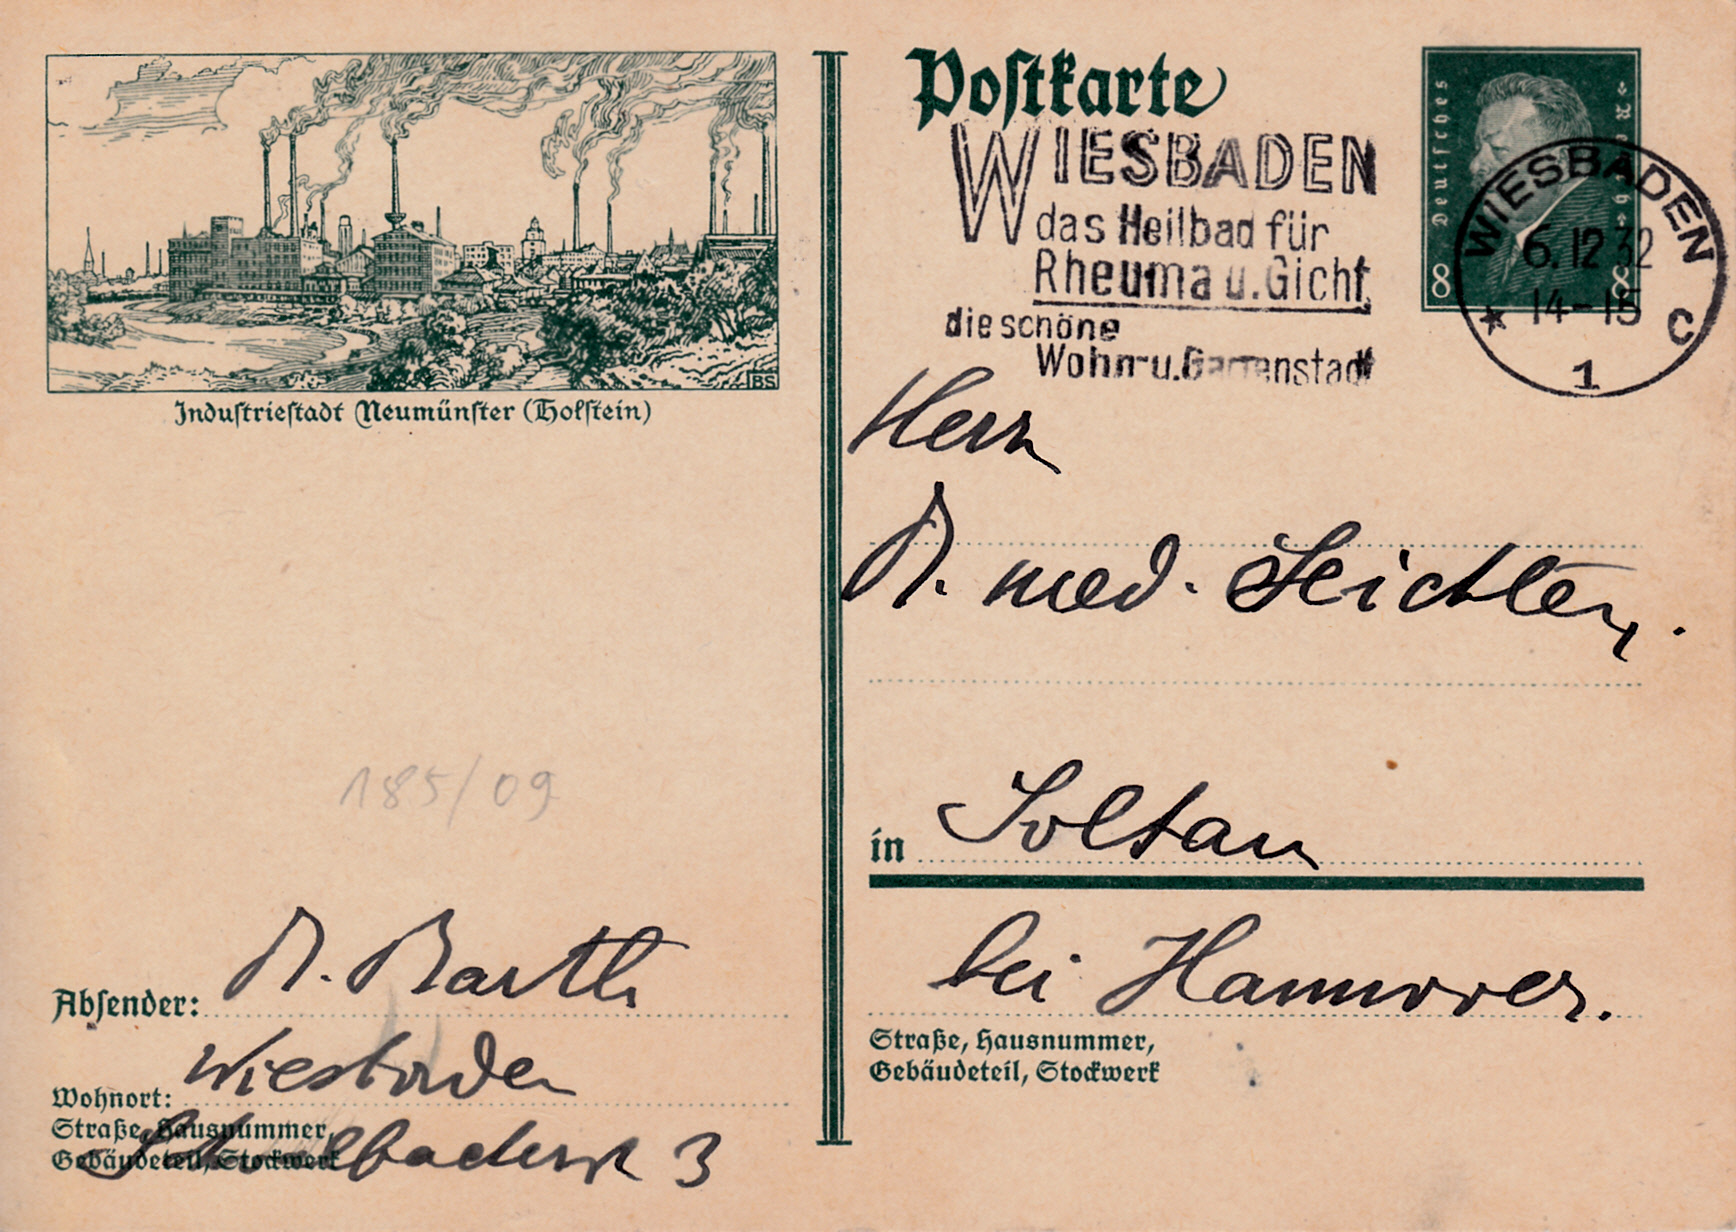 BS
Industriestadt Neumünster (Holstein)
185/09
Absender: Dr. Barth
Wiesbaden
Wohnort:
Straße, Hausnummer,
Gebäudeteil, Stockwerk
Schwalbacherstr 3
Postkarte
Deutsches Reich
8 8
WIESBADEN
das Heilbad für
Rheuma u. Gicht,
die schöne
Wohn- u. Gartenstadt
WIESBADEN
6.12 32
14-15
* 1 c
Herrn
Dr. med.
in Soltau
bei Hannover.
Straße, Hausnummer,
Gebäudeteil, Stockwerk